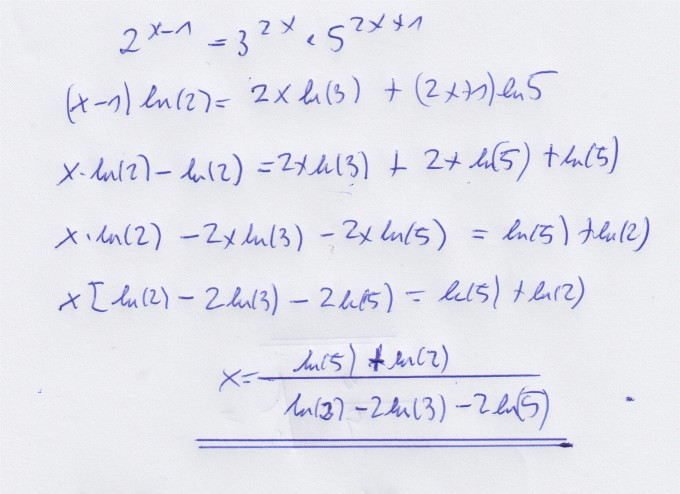 2^{x-1} = 3^{2x} · 5^{2x+1}
(x-1) ln(2) = 2x ln(3) + (2x+1) ln5
x·ln(2) - ln(2) = 2x ln(3) + 2x ln(5) + ln(5)
x·ln(2) - 2x ln(3) - 2x ln(5) = ln(5) + ln(2)
x [ln(2) - 2ln(3) - 2ln(5)) = ln(5) + ln(2)
x = \frac{ln(5) + ln(2)}{ln(2) - 2ln(3) - 2ln(5)}